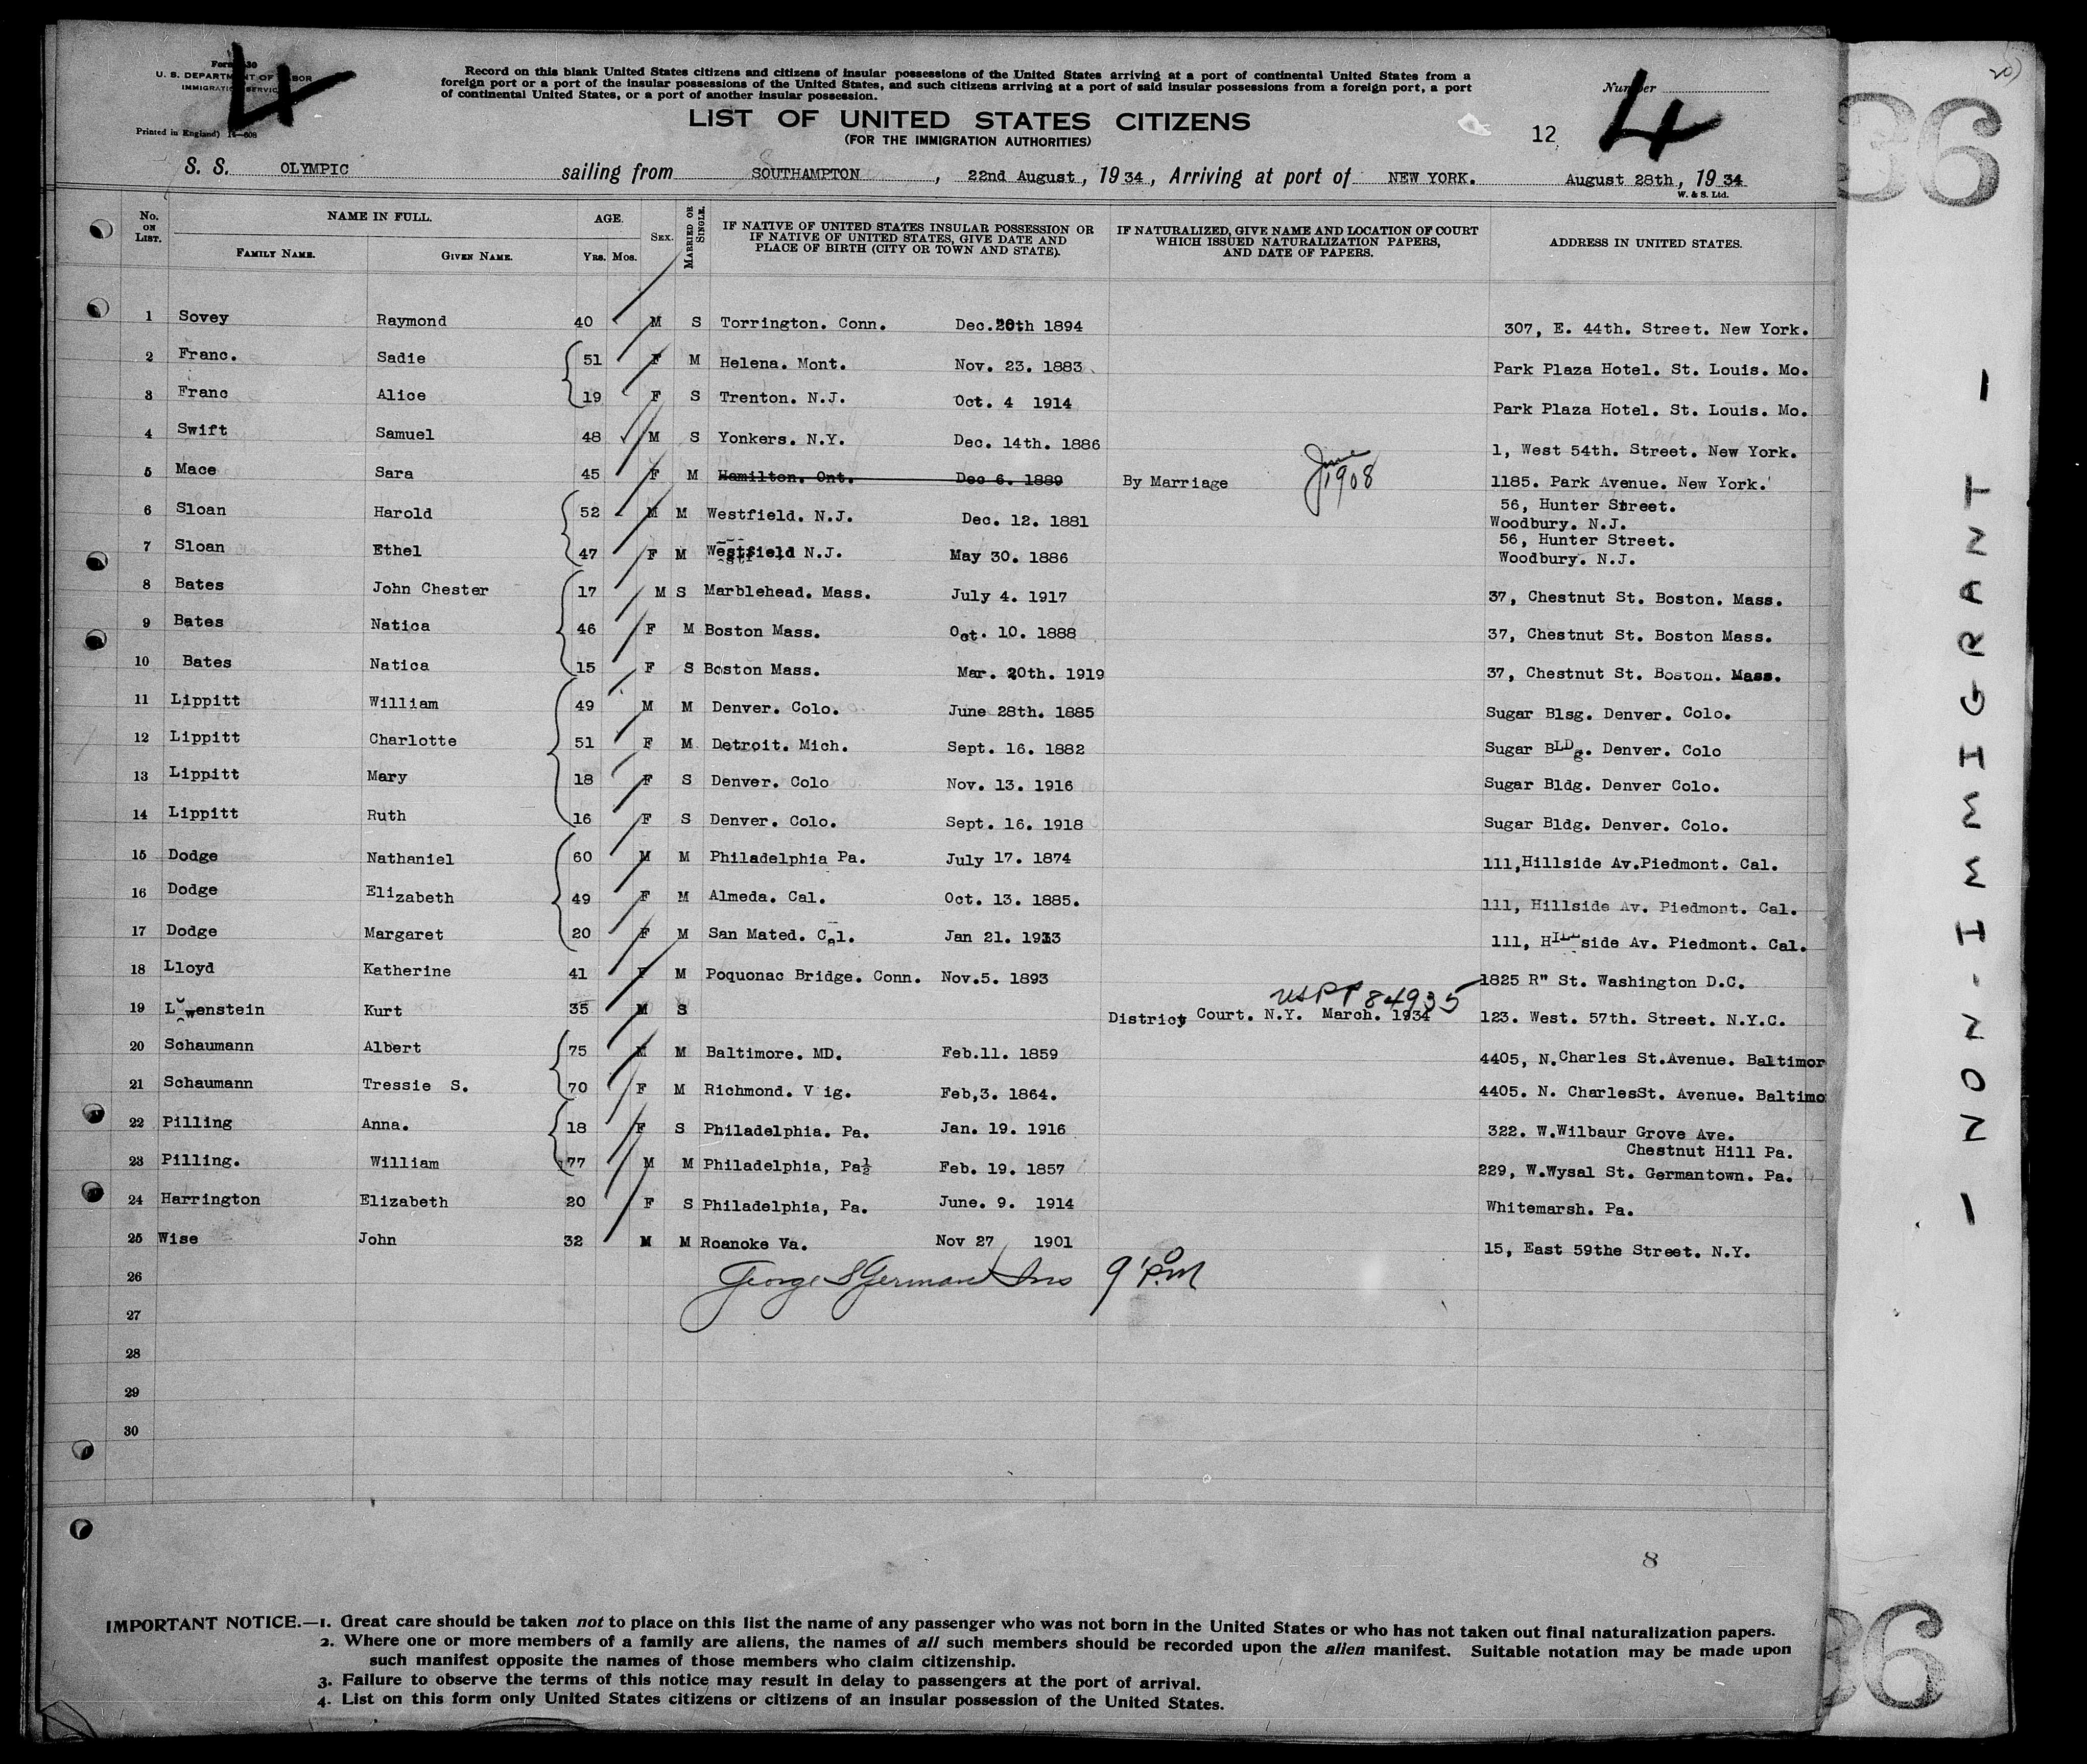 4
U. S. DEPARTMENT OF LABOR
IMMIGRATION SERVICE
Printed in England) 14—608
Record on this blank United States citizens and citizens of insular possessions of the United States arriving at a port of continental United States from a
foreign port or a port of the insular possessions of the United States, and such citizens arriving at a port of said insular possessions from a foreign port, a port
of continental United States, or a port of another insular possession.
LIST OF UNITED STATES CITIZENS
(FOR THE IMMIGRATION AUTHORITIES)
Number
12
4
S. S. OLYMPIC sailing from SOUTHAMPTON, 22nd August, 1934, Arriving at port of NEW YORK. August 28th, 1934
W. & S. Ltd.
No. ON LIST. NAME IN FULL. FAMILY NAME. GIVEN NAME. AGE. YRS. MOS. SEX. MARRIED OR SINGLE. IF NATIVE OF UNITED STATES INSULAR POSSESSION OR IF NATIVE OF UNITED STATES, GIVE DATE AND PLACE OF BIRTH (CITY OR TOWN AND STATE). IF NATURALIZED, GIVE NAME AND LOCATION OF COURT WHICH ISSUED NATURALIZATION PAPERS, AND DATE OF PAPERS. ADDRESS IN UNITED STATES.
1 Sovey Raymond 40 M S Torrington. Conn. Dec.20th 1894 307, E. 44th. Street. New York.
2 Franc. Sadie 51 F M Helena. Mont. Nov. 23. 1883 Park Plaza Hotel. St. Louis. Mo.
3 Franc Alice 19 F S Trenton. N.J. Oct. 4 1914 Park Plaza Hotel. St. Louis. Mo.
4 Swift Samuel 48 M S Yonkers. N.Y. Dec. 14th. 1886 1, West 54th. Street. New York.
5 Mace Sara 45 F M Hamilton. Ont. Dec 6. 1889 By Marriage June 1908 1185. Park Avenue. New York.
6 Sloan Harold 52 M M Westfield. N.J. Dec. 12. 1881 56, Hunter Street. Woodbury. N.J.
7 Sloan Ethel 47 F M Westfield N.J. May 30. 1886 56, Hunter Street. Woodbury. N.J.
8 Bates John Chester 17 M S Marblehead. Mass. July 4. 1917 37, Chestnut St. Boston. Mass.
9 Bates Natica 46 F M Boston Mass. Oct. 10. 1888 37, Chestnut St. Boston Mass.
10 Bates Natica 15 F S Boston Mass. Mar. 20th. 1919 37, Chestnut St. Boston. Mass.
11 Lippitt William 49 M M Denver. Colo. June 28th. 1885 Sugar Blsg. Denver. Colo.
12 Lippitt Charlotte 51 F M Detroit. Mich. Sept. 16. 1882 Sugar BLDg. Denver. Colo
13 Lippitt Mary 18 F S Denver. Colo Nov. 13. 1916 Sugar Bldg. Denver Colo.
14 Lippitt Ruth 16 F S Denver. Colo. Sept. 16. 1918 Sugar Bldg. Denver. Colo.
15 Dodge Nathaniel 60 M M Philadelphia Pa. July 17. 1874 111,Hillside Av.Piedmont. Cal.
16 Dodge Elizabeth 49 F M Almeda. Cal. Oct. 13. 1885. 111, Hillside Av. Piedmont. Cal.
17 Dodge Margaret 20 F M San Mated. Cal. Jan 21. 111, HILLside Av. Piedmont. Cal.
18 Lloyd Katherine 41 F M Poquonac Bridge. Conn. Nov.5. 1893 1825 R" St. Washington D.C.
19 Lowenstein Kurt 35 M S District Court. N.Y. March. 1934 USPP 84935 123. West. 57th. Street. N.Y.C.
20 Schaumann Albert 75 M M Baltimore. MD. Feb.11. 1859 4405, N.Charles St.Avenue. Baltimor
21 Schaumann Tressie S. 70 F M Richmond. V ig. Feb,3. 1864. 4405. N. CharlesSt. Avenue. Baltimo
22 Pilling Anna. 18 F S Philadelphia. Pa. Jan. 19. 1916 322. W.Wilbaur Grove Ave. Chestnut Hill Pa.
23 Pilling. William 77 M M Philadelphia, Pa½ Feb. 19. 1857 229, W.Wysal St. Germantown. Pa.
24 Harrington Elizabeth 20 F S Philadelphia, Pa. June. 9. 1914 Whitemarsh. Pa.
25 Wise John 32 M M Roanoke Va. Nov 27 1901 15, East 59the Street. N.Y.
26 George S German Ins 9 P.M
27
28
29
30
8
IMPORTANT NOTICE.—1. Great care should be taken not to place on this list the name of any passenger who was not born in the United States or who has not taken out final naturalization papers.
2. Where one or more members of a family are aliens, the names of all such members should be recorded upon the alien manifest. Suitable notation may be made upon
such manifest opposite the names of those members who claim citizenship.
3. Failure to observe the terms of this notice may result in delay to passengers at the port of arrival.
4. List on this form only United States citizens or citizens of an insular possession of the United States.
36
- NON-IMMIGRANT -
36